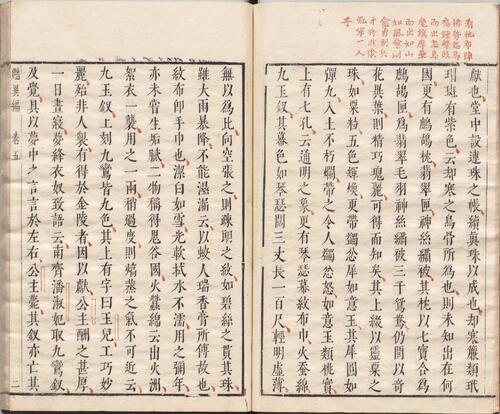 看他布陣
應鐘擊鼓
而出如山
才將淮陰
冠軍一人
手
獻也堂中設連珠之帳續真珠以成也却寒簾類玳
瑁斑有紫色云却寒之鳥骨所為也則未知出在何
國更有鷓鴣枕翡翠匣神絲繡被其枕以七寶合為
鷓鴣匣爲翡翠毛羽神絲繡被三千鴛鴦仍間以奇
花異葉則精巧瑰麗可得而知矣其上綴以靈粟之
珠如粟粒五色輝煥更帶蠲忿犀如意玉其犀圓如
彈九入土不朽爛帶之令人蠲忿怒如意玉類桃實
上有七孔云通明之象更有瑟瑟幕紋布巾火蚕綿
九玉釵其幕色如琴瑟闊三丈長一百尺輕明虛薄
無以為比向空張之則疎朗之紋如碧絲之貫其珠
雖大雨暴降不能濕漏云以蛟人瑞香膏所傅故也
紋布即手巾也潔白如雪光軟拭水不濡用之彌年
亦未嘗生垢膩二物稱得鬼谷國火蠶綿云出火洲
絮衣一襲用之一兩稍過度則熇蒸之氣不可近云
九玉釵上刻九鸞皆九色其上有字曰玉兒工巧妙
麗殆非人製有得於金陵者因以獻公主酬之甚厚
一日晝寢夢絳衣奴致語云南齊潘淑妃取九鸞釵
及覺具以夢中之言言於左右公主薨其釵亦亡其
艷異編 卷五 二